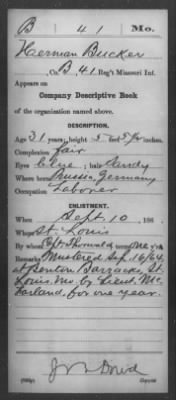 B | 41 | Mo.
Herman Bucker
, Co. B, 41 Reg't Missouri Inf.
Appears on
Company Descriptive Book
of the organization named above.
DESCRIPTION.
Age 31 years; height 5 feet 5 1/4 inches.
Complexion Fair
Eyes Blue; hair Sandy
Where born Prussia, Germany
Occupation Laborer
ENLISTMENT.
When Sept. 10, 186
Where St. Louis
By whom Capt. Thornald; term one y'rs.
Remarks Mustered Sep. 16/64,
at Benton Barracks St.
Louis, Mo. by Lieut. Mc
Farland, for one year.
Copyist.